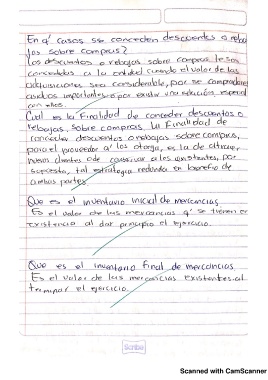 En q' casos se conceden descuentos o reba
jas sobre compras?
Los descuentos o rebajas sobre compras le son
concedidos a la entidad cuando el valor de las
adquisiciones sea considerable, por ser compradores
importantes o por existir una relación especial
con ellos.
Cual es la Finalidad de conceder descuentos o
rebajas sobre compras, la Finalidad de
conceder descuentos o rebajas sobre compras,
para el proveedor q' los otorga, es la de atraer,
nuevos clientes o de conservar a los existentes, por
supuesto, tal estrategia redunda en beneficio de
ambas partes.
Que es el inventario inicial de mercancias
Es el valor de las mercancias q' se tienen en
existencia al dar principio el ejercicio.
Que es el inventario Final de mercancias
Es el valor de las mercancias existentes al
terminar el ejercicio.
Scribe
Scanned with CamScanner